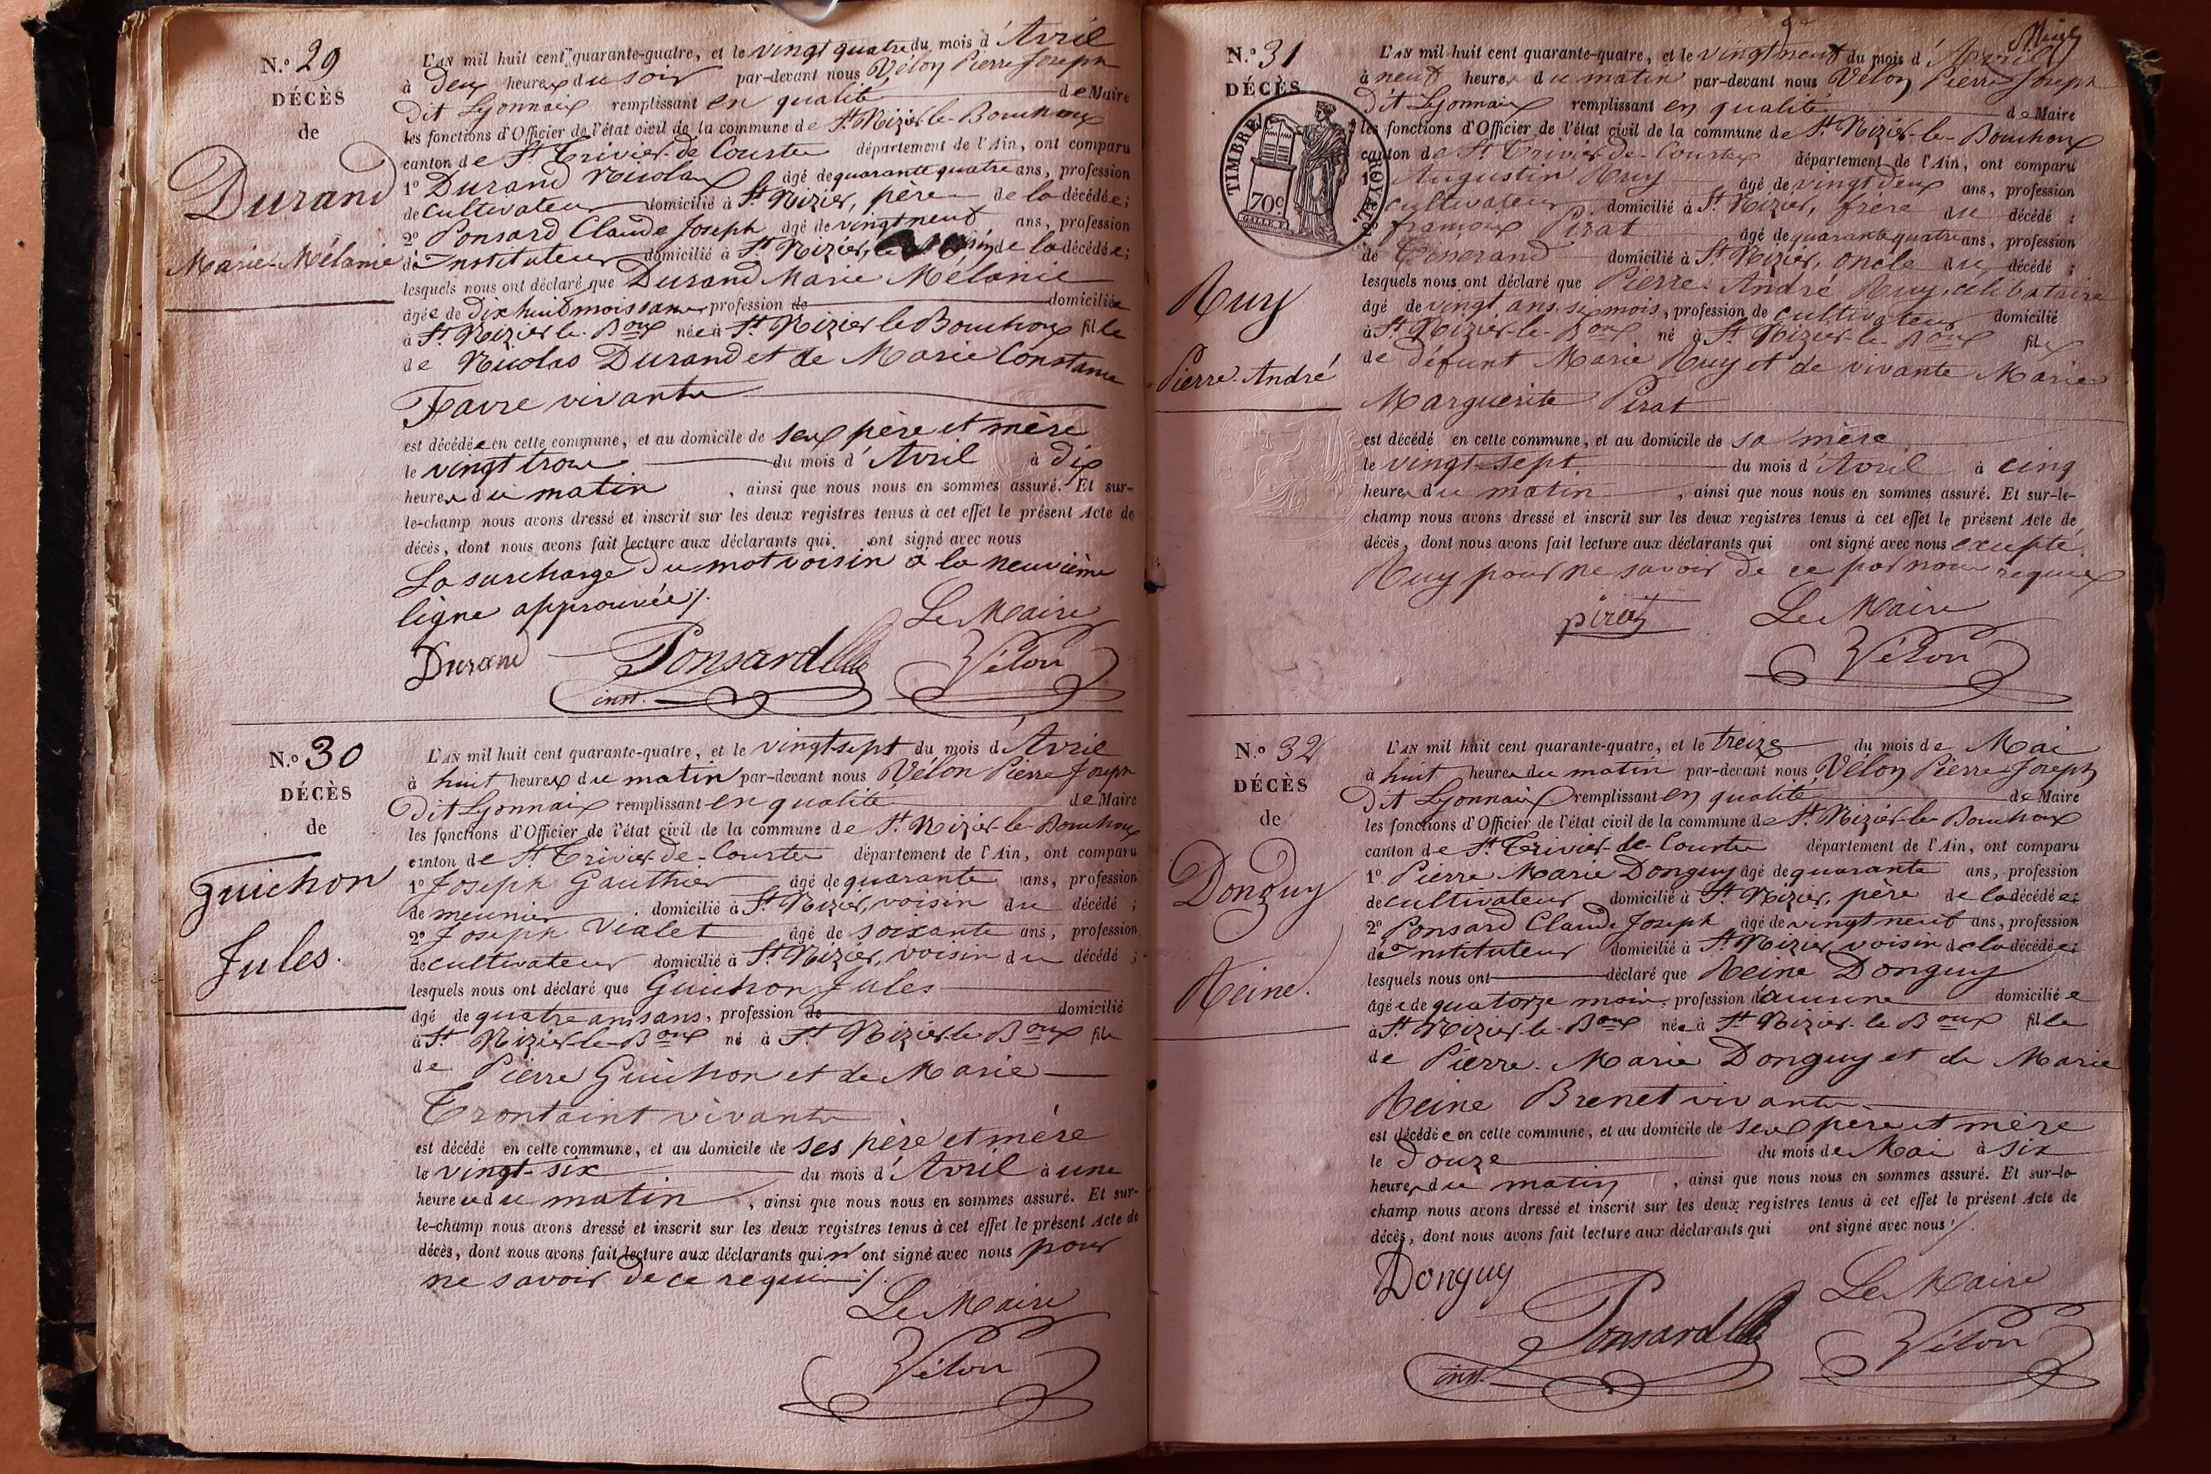 N.o 29
DÉCÈS
de
Durand
Marie-Mélanie
L'AN mil huit cent quarante-quatre, et le vingt quatre du mois d'Avril
à deux heures du soir par-devant nous Vélon Pierre Joseph
dit Lyonnais remplissant en qualité de Maire
les fonctions d'Officier de l'état civil de la commune de St. Nizier-le-Bouchoux
canton de St. Trivier-de-Courtes département de l'Ain, ont comparu
1o Durand Nicolas âgé de quarante quatre ans, profession
de cultivateur domicilié à St. Nizier, père de la décédée;
2o Ponsard Claude Joseph âgé de vingt neuf ans, profession
de Instituteur domicilié à St. Nizier, voisin de la décédée;
lesquels nous ont déclaré que Durand Marie Mélanie
âgée de dix huit mois ans, profession de domiciliée
à St. Nizier-le-Boux née à St. Nizier le Bouchoux fille
de Nicolas Durand et de Marie Constance
Favre vivants
est décédée en cette commune, et au domicile de ses père et mère
le vingt trois du mois d'Avril à dix
heures du matin, ainsi que nous nous en sommes assuré. Et sur-
le-champ nous avons dressé et inscrit sur les deux registres tenus à cet effet le présent Acte de
décès, dont nous avons fait lecture aux déclarants qui ont signé avec nous
La surcharge du mot voisin à la neuvième
ligne approuvée /.
Le Maire
Durand Ponsard Vélon
inst.
N.o 30
DÉCÈS
de
Guichon
Jules.
L'AN mil huit cent quarante-quatre, et le vingt sept du mois d'Avril
à huit heures du matin par-devant nous Vélon Pierre Joseph
dit Lyonnais remplissant en qualité de Maire
les fonctions d'Officier de l'état civil de la commune de St. Nizier-le-Bouchoux
canton de St. Trivier-de-Courtes département de l'Ain, ont comparu
1o Joseph Gauthier âgé de quarante ans, profession
de meunier domicilié à St. Nizier, voisin du décédé;
2o Joseph Vialet âgé de soixante ans, profession
de cultivateur domicilié à St. Nizier, voisin du décédé;
lesquels nous ont déclaré que Guichon Jules
âgé de quatre ans, profession de domicilié
à St. Nizier-le-Boux né à St. Nizier-le-Boux fils
de Pierre Guichon et de Marie
Trontaint vivants
est décédé en cette commune, et au domicile de ses père et mère
le vingt-six du mois d'Avril à une
heure du matin, ainsi que nous nous en sommes assuré. Et sur-
le-champ nous avons dressé et inscrit sur les deux registres tenus à cet effet le présent Acte de
décès, dont nous avons fait lecture aux déclarants qui n'ont signé avec nous pour
ne savoir de ce requis /.
Le Maire
Vélon
N.o 31
DÉCÈS
TIMBRE ROYAL.
70c
Ruy
Pierre-André
L'AN mil huit cent quarante-quatre, et le vingt neuf du mois d'Avril
à neuf heures du matin par-devant nous Vélon Pierre Joseph
dit Lyonnais remplissant en qualité de Maire
les fonctions d'Officier de l'état civil de la commune de St. Nizier-le-Bouchoux
canton de St. Trivier-de-Courtes département de l'Ain, ont comparu
1o Augustin Ruy âgé de vingt deux ans, profession
cultivateur domicilié à St. Nizier, frère du décédé;
2o françois Pirat âgé de quarante quatre ans, profession
de domicilié à St. Nizier, oncle du décédé;
lesquels nous ont déclaré que Pierre André Ruy, célibataire
âgé de vingt ans six mois, profession de cultivateur domicilié
à St. Nizier-le-Boux né à St. Nizier-le-Boux fils
de défunt Marie Ruy et de vivante Marie
Marguerite Pirat
est décédé en cette commune, et au domicile de sa mère
le vingt-sept du mois d'Avril à cinq
heures du matin, ainsi que nous nous en sommes assuré. Et sur-le-
champ nous avons dressé et inscrit sur les deux registres tenus à cet effet le présent Acte de
décès, dont nous avons fait lecture aux déclarants qui ont signé avec nous excepté
Ruy pour ne savoir de ce par nous requis
pirat Le Maire
Vélon
N.o 32
DÉCÈS
de
Donguy
Reine.
L'AN mil huit cent quarante-quatre, et le treize du mois de Mai
à huit heures du matin par-devant nous Vélon Pierre-Joseph
dit Lyonnais remplissant en qualité de Maire
les fonctions d'Officier de l'état civil de la commune de St. Nizier-le-Bouchoux
canton de St. Trivier-de-Courtes département de l'Ain, ont comparu
1o Pierre Marie Donguy âgé de quarante ans, profession
de cultivateur domicilié à St. Nizier, père de la décédée;
2o Ponsard Claude Joseph âgé de vingt neuf ans, profession
de Instituteur domicilié à St. Nizier, voisin de la décédée;
lesquels nous ont déclaré que Reine Donguy
âgée de quatorze mois, profession d'aucune domiciliée
à St. Nizier-le-Boux née à St. Nizier-le-Boux fille
de Pierre-Marie Donguy et de Marie
Reine Brenet vivants
est décédée en cette commune, et au domicile de ses père et mère
le douze du mois de Mai à six
heures du matin, ainsi que nous nous en sommes assuré. Et sur-le-
champ nous avons dressé et inscrit sur les deux registres tenus à cet effet le présent Acte de
décès, dont nous avons fait lecture aux déclarants qui ont signé avec nous /.
Donguy Le Maire
Ponsard Vélon
inst.